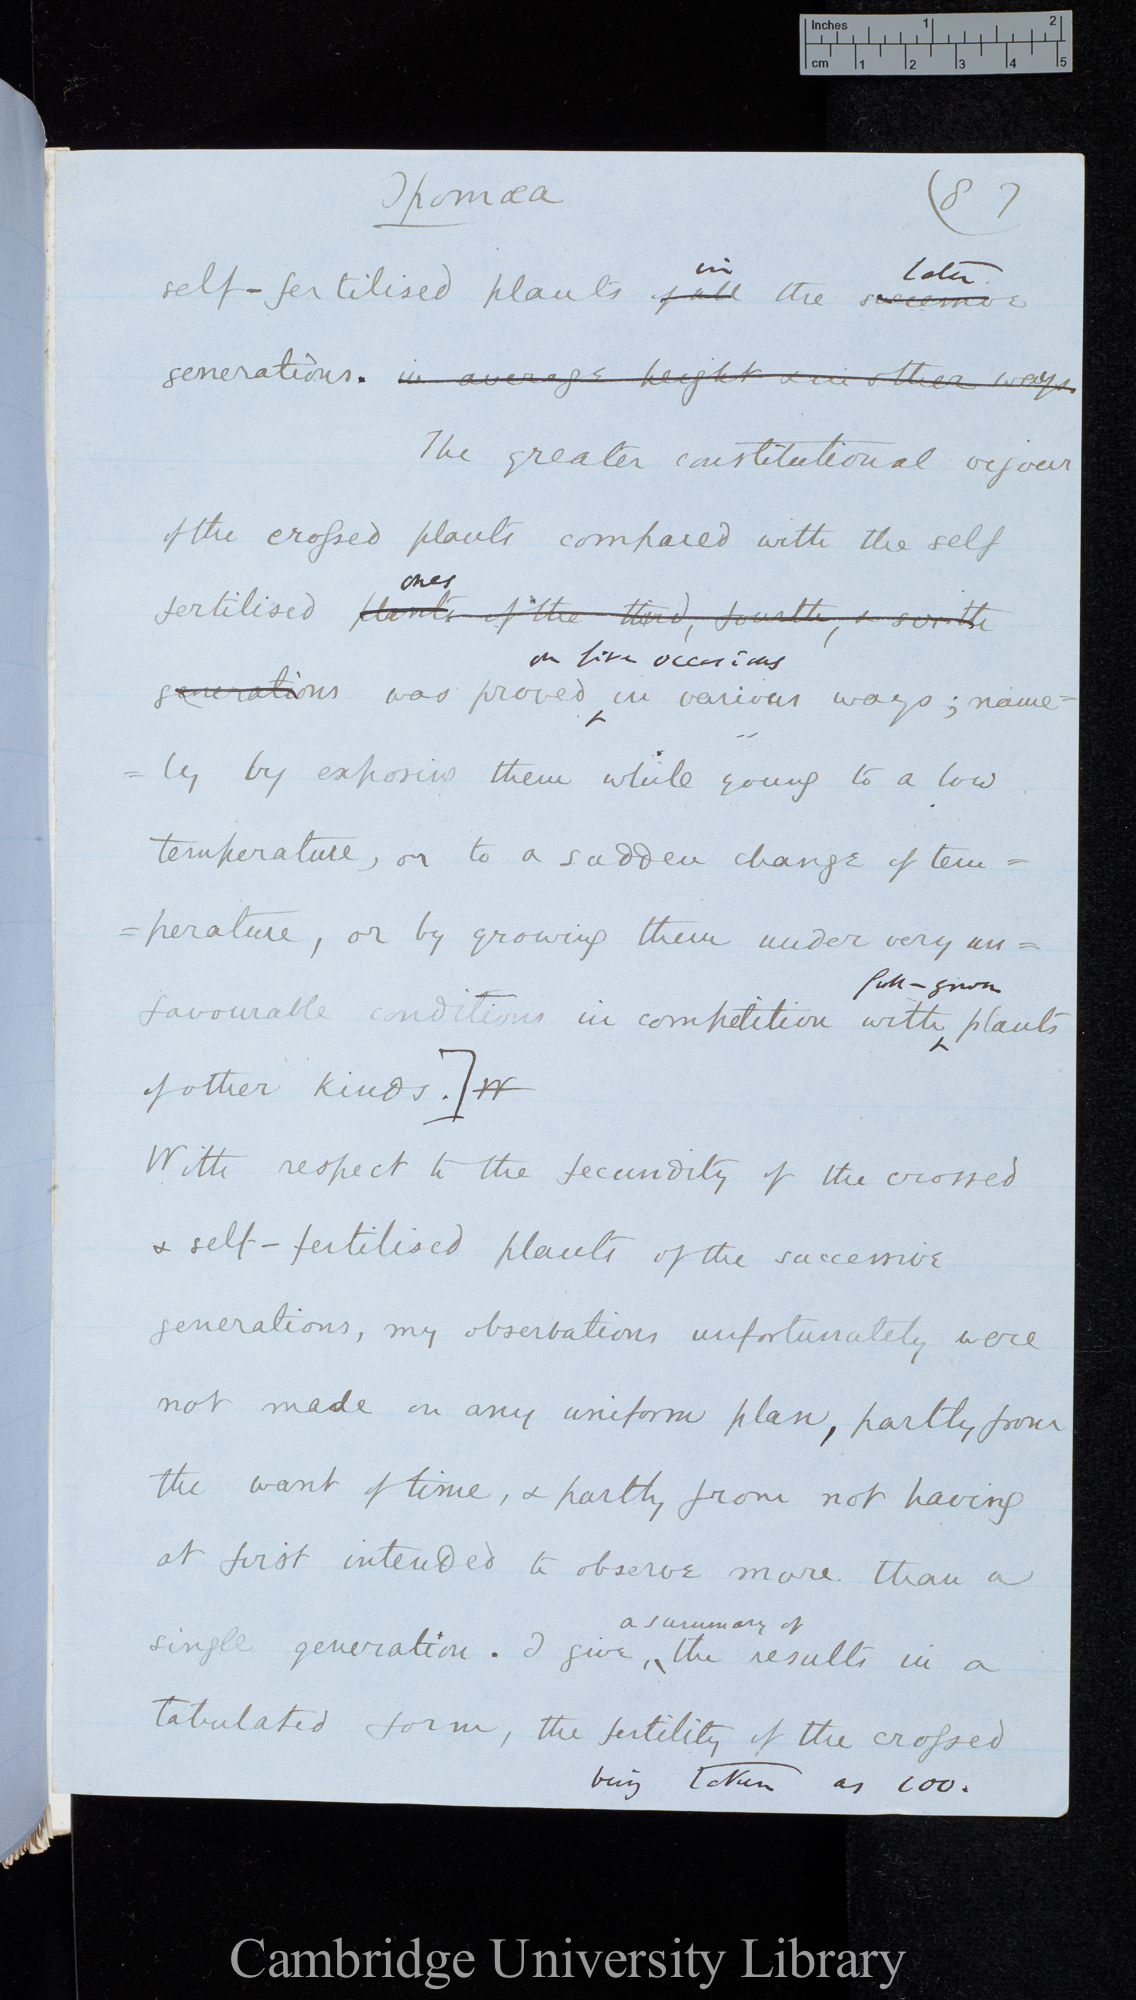 Inches 1 2
cm 1 2 3 4 5
Ipomæa (87
in later
self-fertilised plants of all the successive
generations. in average height & in other ways.
The greater constitutional vigour
of the crossed plants compared with the self
ones
fertilised plants of the third, fourth, & sixth
on five occasions
generations was proved ‸ in various ways; name=
=ly by exposing them while young to a low
temperature, or to a sudden change of tem=
=perature, or by growing them under very un=
full-grown
favourable conditions in competition with ‸ plants
of other kinds.] W
With respect to the fecundity of the crossed
& self-fertilised plants of the successive
generations, my observations unfortunately were
not made on any uniform plan, partly from
the want of time, & partly from not having
at first intended to observe more than a
a summary of
single generation. I give, ‸ the results in a
tabulated form, the fertility of the crossed
being taken as 100.
Cambridge University Library